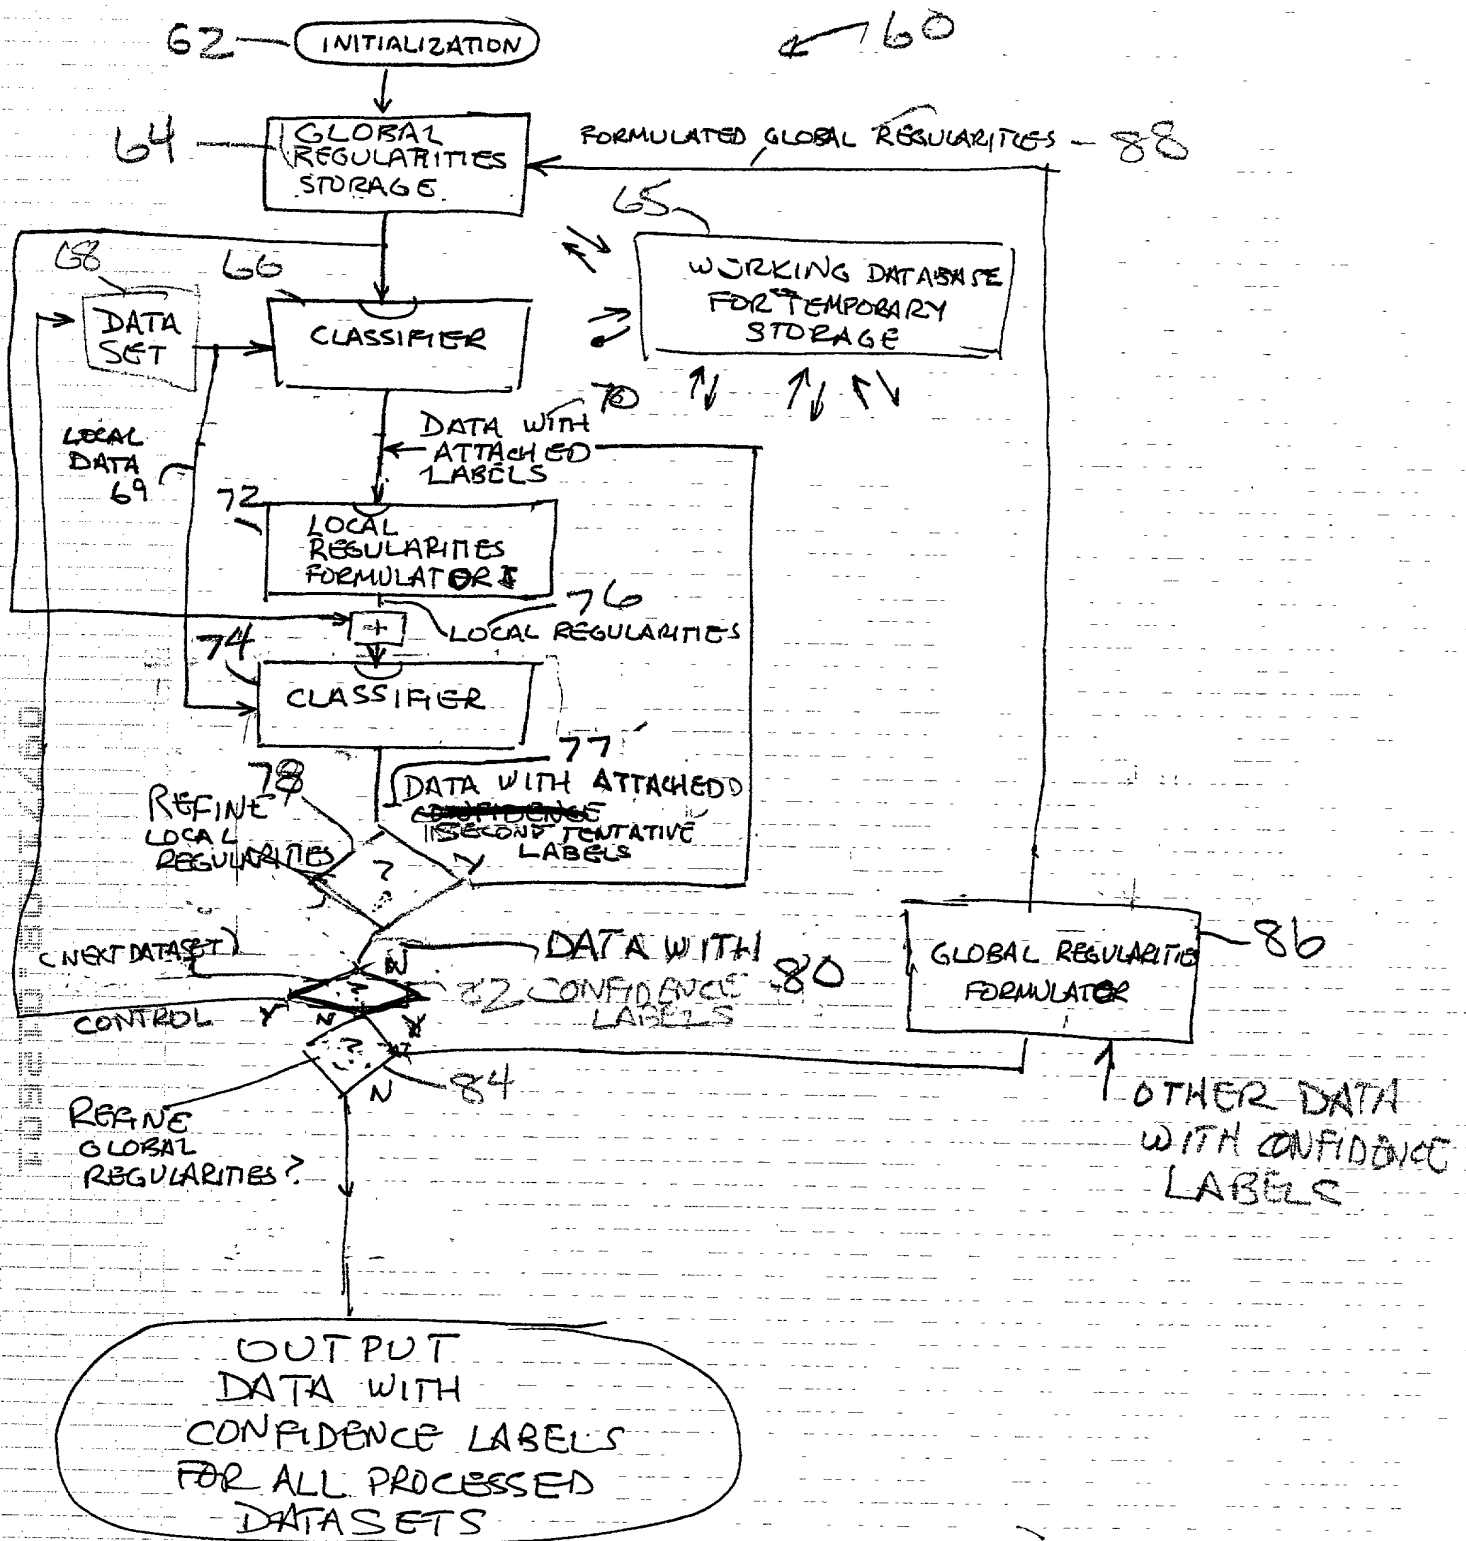 62
INITIALIZATION
60
64
GLOBAL
REGULARITIES
STORAGE
FORMULATED GLOBAL REGULARITIES - 88
65
WORKING DATABASE
FOR TEMPORARY
STORAGE
68
DATA
SET
66
CLASSIFIER
70
DATA WITH
ATTACHED
LABELS
LOCAL
DATA
69
72
LOCAL
REGULARITIES
FORMULATOR
76
+
LOCAL REGULARITIES
74
CLASSIFIER
77
DATA WITH ATTACHED
CONFIDENCE
SECOND TENTATIVE
LABELS
78
REFINE
LOCAL
REGULARITIES
?
Y
N
(NEXT DATASET)
DATA WITH
CONFIDENCE
LABELS
80
82
?
Y
N
Y
CONTROL
?
N
84
REFINE
GLOBAL
REGULARITIES?
GLOBAL REGULARITIE
FORMULATOR
86
OTHER DATA
WITH CONFIDENCE
LABELS
OUTPUT
DATA WITH
CONFIDENCE LABELS
FOR ALL PROCESSED
DATASETS